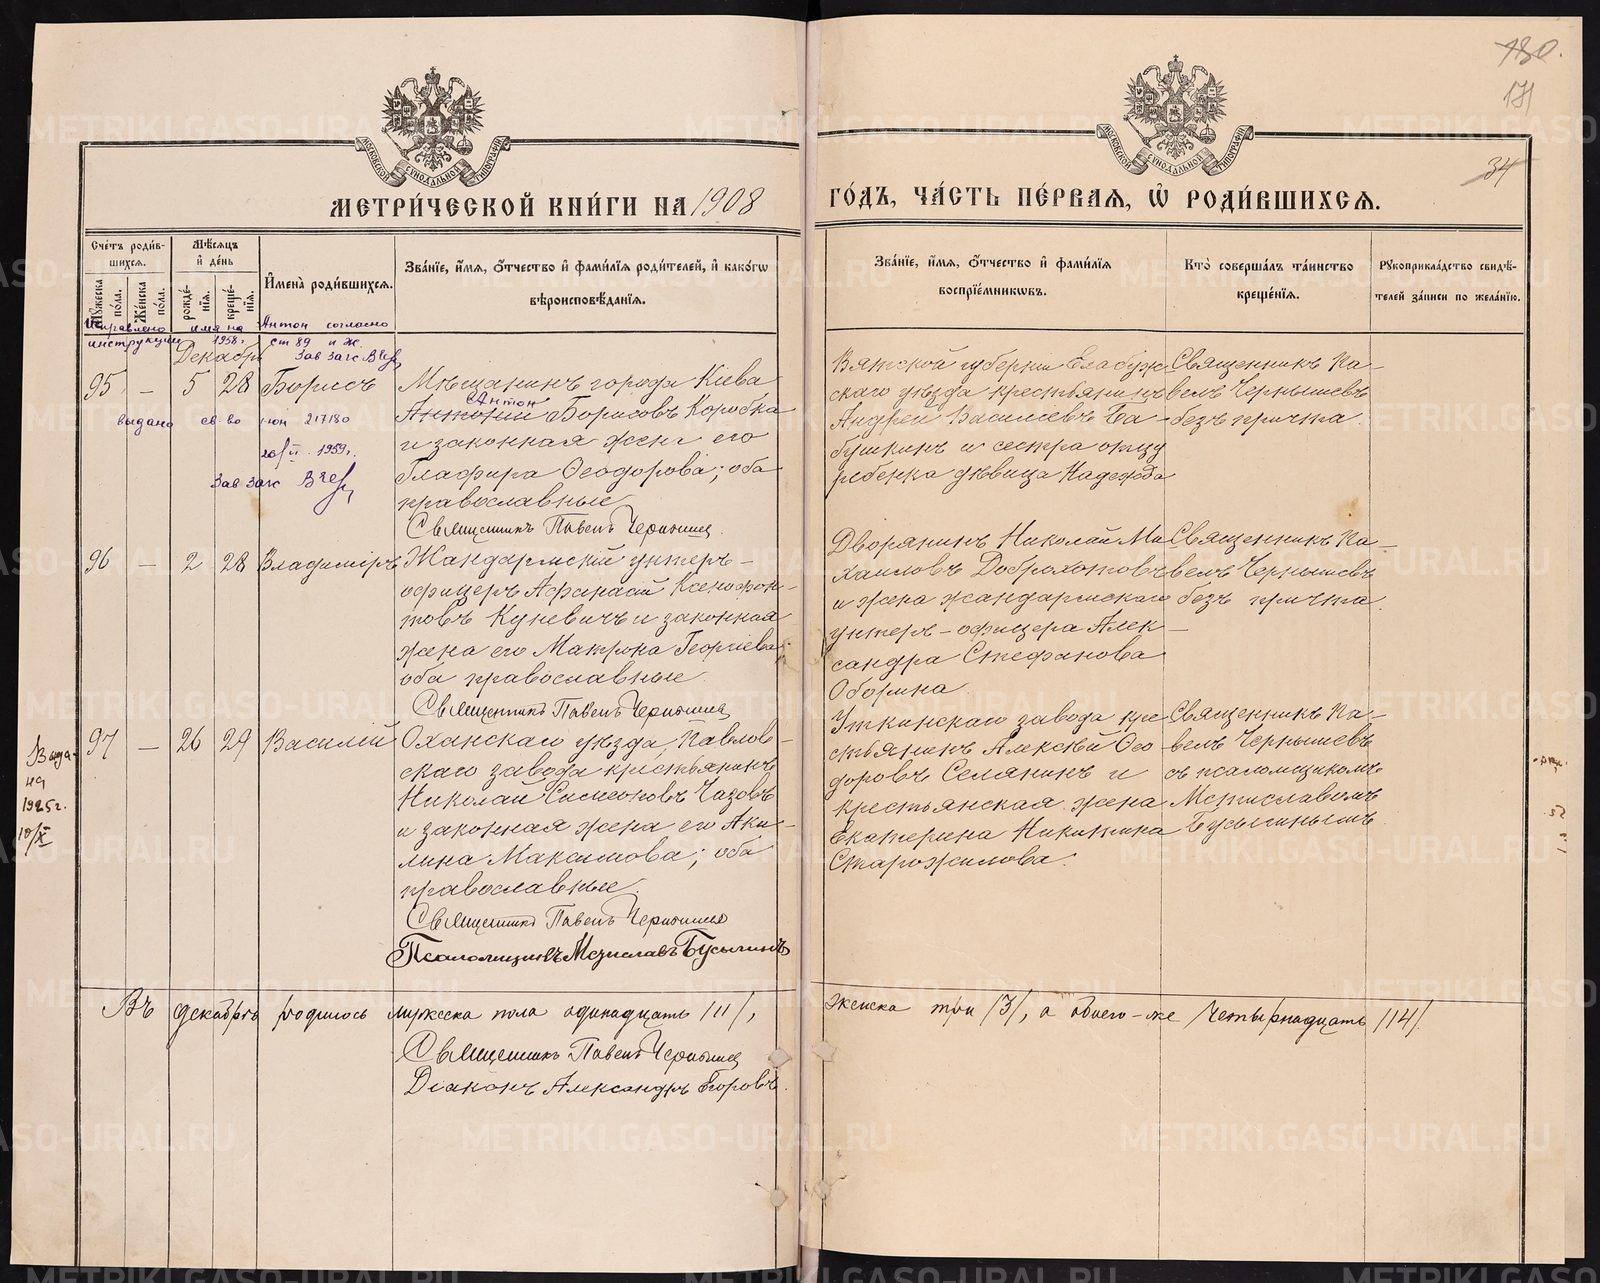 130.
171
34
МОСКОВСКОЙ СѴНОДАЛЬНОЙ ТИПОГРАФІИ
МОСКОВСКОЙ СѴНОДАЛЬНОЙ ТИПОГРАФІИ
МЕТРИ́ЧЕСКОЙ КНИ́ГИ НА 1908
ГО́ДЪ, ЧА́СТЬ ПЕ́РВАѦ, Ѡ҆ РОДИ́ВШИХСѦ.
Сче́тъ роди́в-
шихсѧ.
Мꙋ́жеска по́ла.
Же́нска по́ла.
Мѣ́сѧцъ
и҆ де́нь
рожде́-
нїѧ.
креще́-
нїѧ.
И҆мена̀ роди́вшихсѧ.
Зва́нїе, и҆́мѧ, ѻ҆́тчество и҆ фами́лїѧ роди́телей, и҆ како́гѡ
вѣроисповѣ́данїѧ.
Зва́нїе, и҆́мѧ, ѻ҆́тчество и҆ фами́лїѧ
воспрїе́мникѡвъ.
Кто̀ соверша́лъ та́инство
креще́нїѧ.
Рꙋкоприкла́дство свидѣ́-
телей за́писи по жела́нїю.
Исправлено имя на Антон согласно
инструкции 1958 г. ст 89 и Ж.
Зав Загс
Декабрь
95 – 5 28 Борисъ
выдано св-во
217180
1959 г.
Зав Загс
Мѣщанинъ города Кіева
Антон
Антоній Борисовъ Коробка
и законная жена его
Глафира Ѳеодорова; оба
православные
Священникъ Павелъ Чернышев
Вятской губерніи Елабуж
скаго уѣзда крестьянинъ
Андрей Васильевъ Ба-
бушкинъ и сестра отцу
ребенка дѣвица Надежда
Священникъ Па-
велъ Чернышевъ
безъ причта.
96 – 2 28 Владиміръ
Жандармскій унтеръ-
офицеръ Афанасій Ксенофон-
товъ Куневичъ и законная
жена его Матрона Георгіева;
оба православные.
Священникъ Павелъ Чернышев
Дворянинъ Николай Ми
хаиловъ Доброхотовъ
и жена жандармскаго
унтеръ-офицера Алек-
сандра Стефанова
Оборина
Священникъ Па-
велъ Чернышевъ
безъ причта.
Выда-
на
1925 г.
10/X
97 – 26 29 Василій
Оханскаго уѣзда, Павлов-
скаго завода крестьянинъ
Николай Симеоновъ Чазовъ
и законная жена его Аки-
лина Максимова; оба
православные.
Священникъ Павелъ Чернышев
Псаломщикъ Мстиславъ Бусыгинъ
Уткинскаго завода кре
стьянинъ Алексѣй Ѳео
доровъ Селянинъ и
крестьянская жена
Екатерина Никитина
Старожилова.
Священникъ Па-
велъ Чернышевъ
съ псаломщикомъ
Мстиславомъ
Бусыгинымъ
Въ декабрѣ родилось мужеска пола одинадцать /11/,
женска три /3/, а обоего-же четырнадцать /14/.
Священникъ Павелъ Чернышев
Діаконъ Александръ Егоровъ.
METRIKI.GASO-URAL.RU